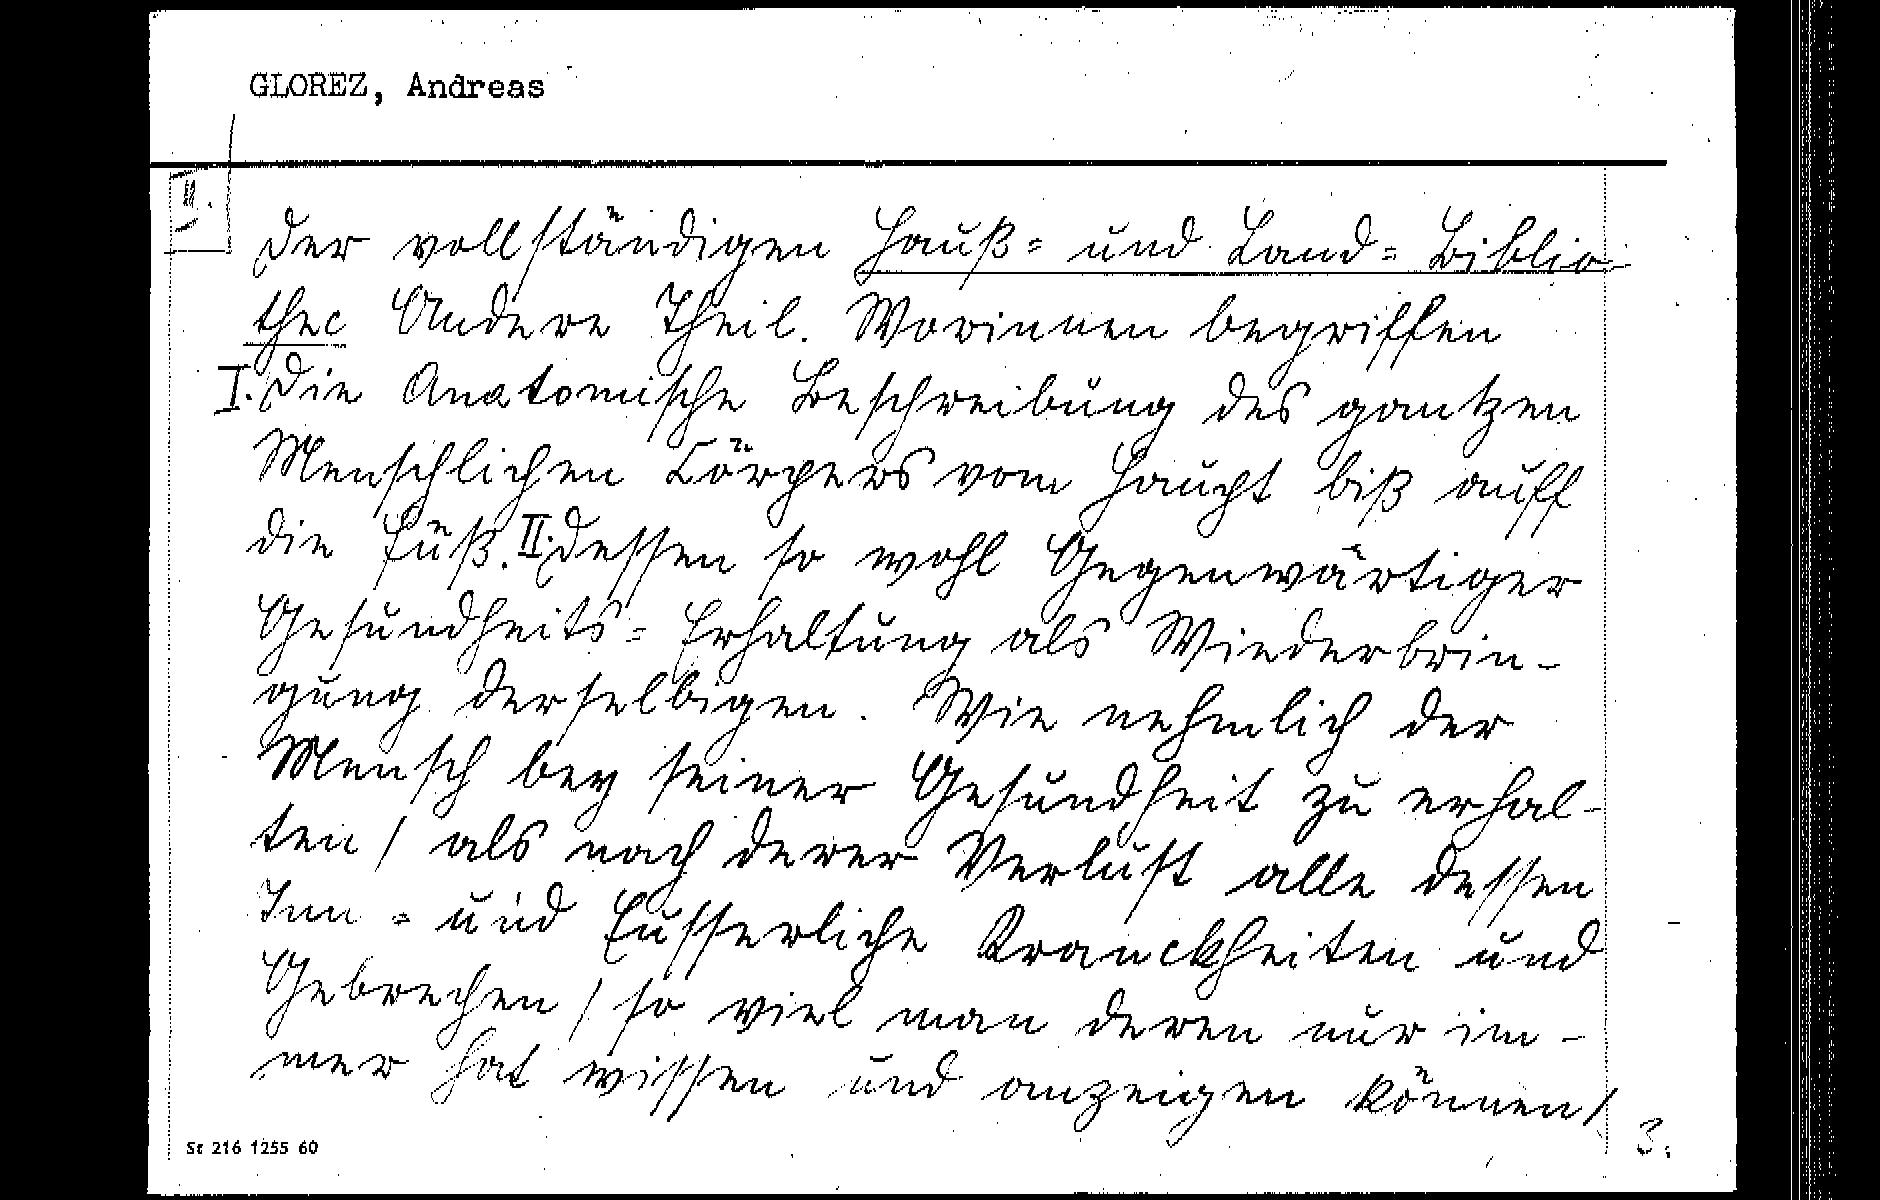 GLOREZ, Andreas
II.
Der vollständigen Hauß= und Land= Biblio-
thec Andere Theil. Worinnen begriffen
I. Die Anatomische Beschreibung des gantzen
Menschlichen Cörpers vom Haupt biß auff
die Füß. II. Dessen so wohl Gegenwärtiger
Gesundheits= Erhaltung als Wiederbrin-
gung derselbigen. Wie nehmlich der
Mensch bey seiner Gesundheit zu erhal-
ten / als nach derer Verlust alle dessen
Inn = und Eusserliche Kranckheiten und
Gebrechen / so viel man deren nur im-
mer hat wissen und anzeigen können /
St 216 1255 60
3.